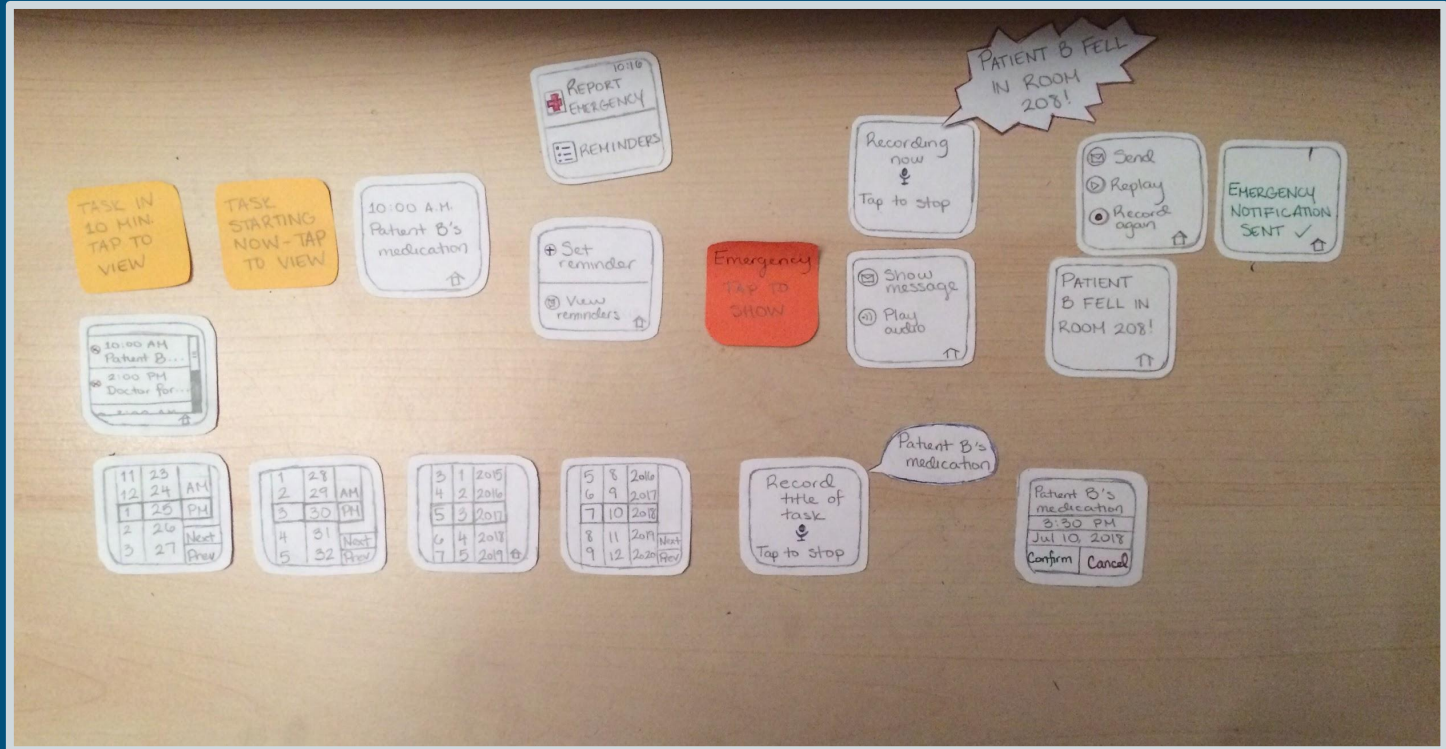 10:16
REPORT
EMERGENCY
REMINDERS
PATIENT B FELL
IN ROOM
208!
Recording
now
Tap to stop
Send
Replay
Record
again
EMERGENCY
NOTIFICATION
SENT ✓
TASK IN
10 MIN.
TAP TO
VIEW
TASK
STARTING
NOW-TAP
TO VIEW
10:00 A.M.
Patient B's
medication
Set
reminder
View
reminders
Emergency
TAP TO
SHOW
Show
message
Play
audio
PATIENT
B FELL IN
ROOM 208!
10:00 AM
Patient B...
2:00 PM
Doctor for...
11 23
12 24 AM
1 25 PM
2 26 Next
3 27 Prev
1 28
2 29 AM
3 30 PM
4 31 Next
5 32 Prev
3 1 2015
4 2 2016
5 3 2017
6 4 2018
7 5 2019
5 8 2016
6 9 2017
7 10 2018
8 11 2019 Next
9 12 2020 Prev
Record
title of
task
Tap to stop
Patient B's
medication
Patient B's
medication
3:30 PM
Jul 10, 2018
Confirm Cancel